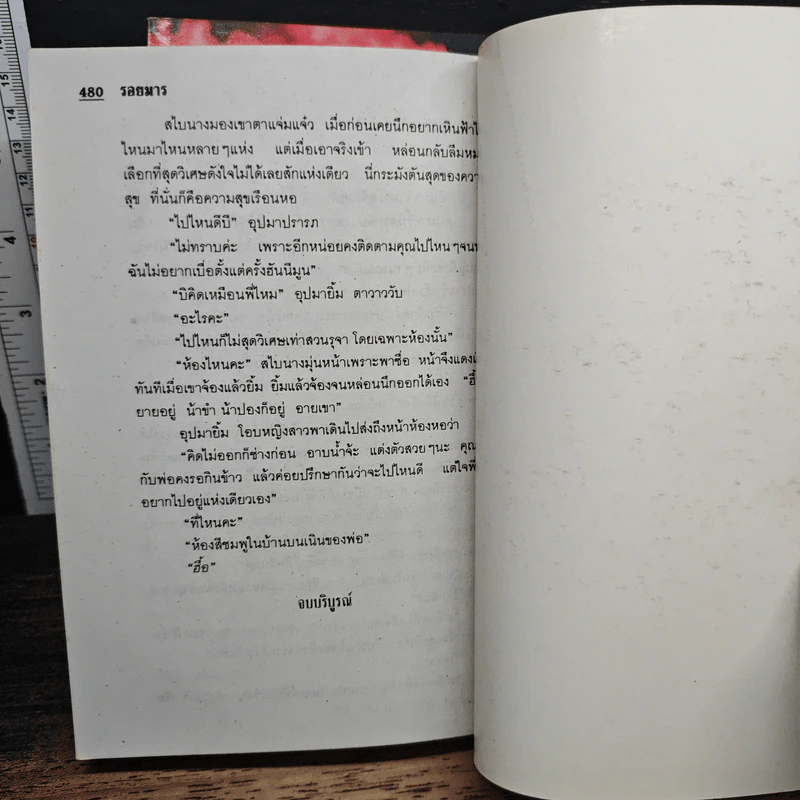 480 รอยมาร
สไบนางมองเขาตาแจ่มแจ๋ว เมื่อก่อนเคยนึกอยากเหินฟ้าไ
ไหนมาไหนหลายๆแห่ง แต่เมื่อเอาจริงเข้า หล่อนกลับลืมหม
เลือกที่สุดวิเศษดังใจไม่ได้เลยสักแห่งเดียว นี่กระมังตันสุดของควา
สุข ที่นั่นก็คือความสุขเรือนหอ
“ไปไหนดีบี” อุปมาปรารภ
“ไม่ทราบค่ะ เพราะอีกหน่อยคงติดตามคุณไปไหนๆจนท
ฉันไม่อยากเบื่อตั้งแต่ครั้งฮันนีมูน”
“บีคิดเหมือนพี่ไหม” อุปมายิ้ม ตาวาววับ
“อะไรคะ”
“ไปไหนก็ไม่สุดวิเศษเท่าสวนรุจา โดยเฉพาะห้องนั้น”
“ห้องไหนคะ” สไบนางมุ่นหน้าเพราะพาซื่อ หน้าจึงแดงเ
ทันทีเมื่อเขาจ้องแล้วยิ้ม ยิ้มแล้วจ้องจนหล่อนนึกออกได้เอง “ฮื้
ยายอยู่ น้าขำ น้าปองก็อยู่ อายเขา”
อุปมายิ้ม โอบหญิงสาวพาเดินไปส่งถึงหน้าห้องหอว่า
“คิดไม่ออกก็ช่างก่อน อาบน้ำจ้ะ แต่งตัวสวยๆนะ คุณ
กับพ่อคงรอกินข้าว แล้วค่อยปรึกษากันว่าจะไปไหนดี แต่ใจพี่
อยากไปอยู่แห่งเดียวเอง”
“ที่ไหนคะ”
“ห้องสีชมพูในบ้านบนเนินของพ่อ”
“ฮื้อ”
จบบริบูรณ์
15
14
13
12
11
5
4
3
2